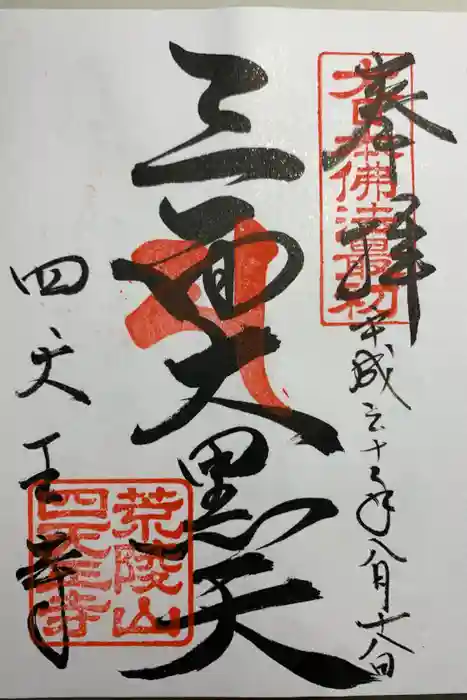 奉拝
大日本佛法最初
平成 十 年八月十六日
三面大黒天
四天王寺
荒陵山
四天王寺